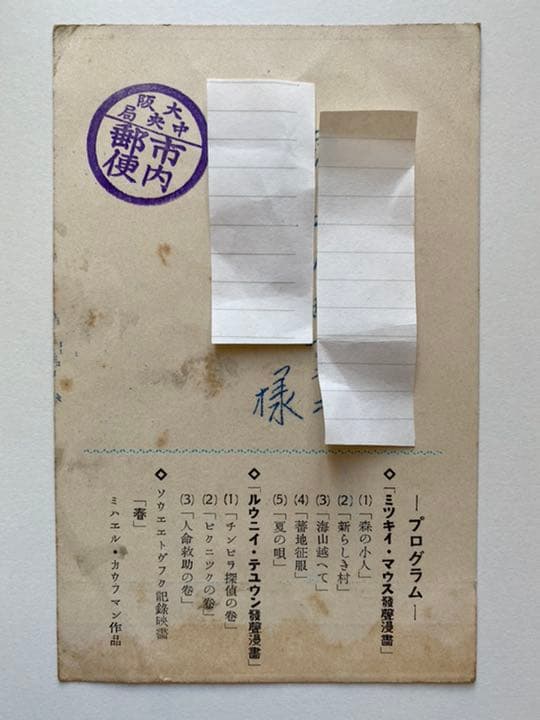 大阪
中央局
市内
郵便
様
—プログラム—
◇「ミツキイ・マウス發聲漫畫」
(1)「森の小人」
(2)「新らしき村」
(3)「海山越へて」
(4)「蕃地征服」
(5)「夏の唄」
◇「ルウニイ・テユウン發聲漫畫」
(1)「チンピラ探偵の卷」
(2)「ピクニツクの卷」
(3)「人命救助の卷」
◇ソウエエトヴフク記錄映畫
「春」
ミハエル・カウフマン作品